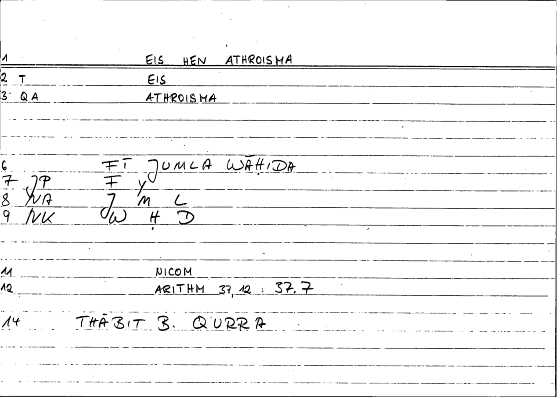 1 EIS HEN ATHROISMA
2 T EIS
3 QA ATHROISMA
6 FĪ JUMLA WĀḤIDA
7 JP F Y
8 NA J M L
9 NK W Ḥ D
11 NICOM
12 ARITHM 37,12 : 37.7
14 THĀBIT B. QURRA